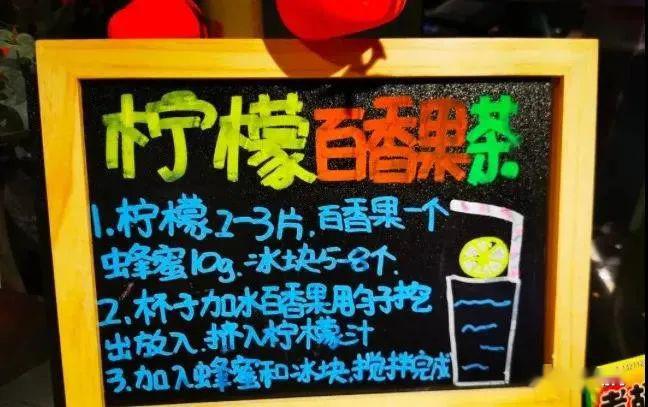 柠檬百香果茶
1.柠檬2-3片.百香果一个
蜂蜜10g.冰块5-8个.
2.杯子加冰百香果用勺子挖
出放入.挤入柠檬汁
3.加入蜂蜜和冰块.搅拌完成